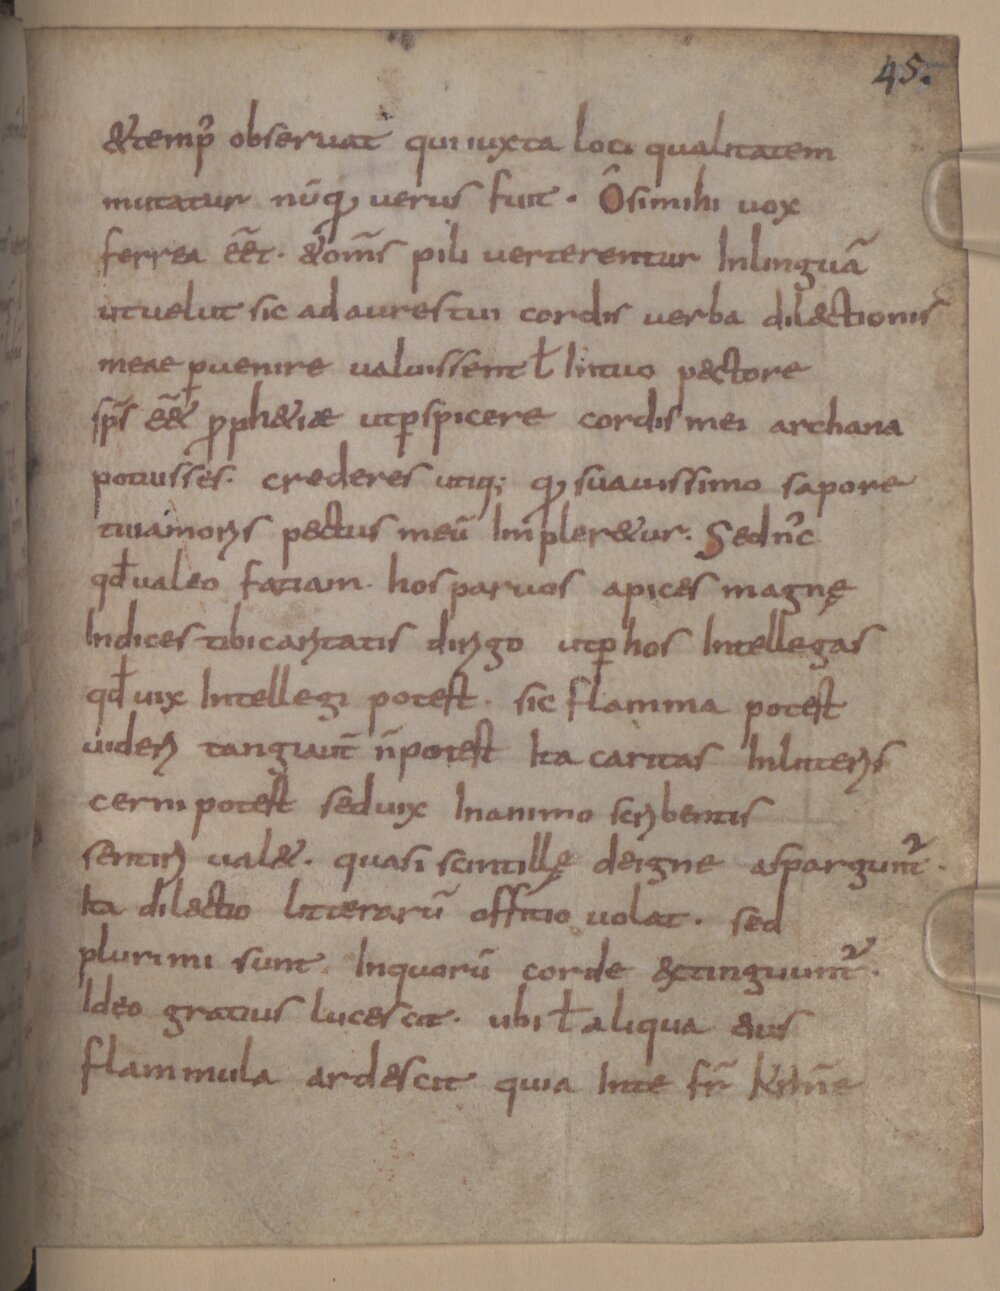 45.
&temp̄ obseruat qui iuxta loci qualitatem
mutatur nūq, uerus fuit · Ô si mihi uox
ferrea eēt · & om̄s pili uerterentur In linguā
ut uelut sic ad aures tui cordis uerba dil&ctionis
meae puenire ualuissent ł In tuo pectore
sp̄s eē& p̱ph&iæ ut ꝑspicere cordis mei archana
potuisses · crederes utiq; q, suauissimo sapore
tui amoris pectus meū Impler&ur · Sed nc̄
qđ ualeo faciam · hos paruos apices magnę
Indices tibi caritatis dirigo ut ꝑ hos Intellegas
qđ uix Intellegi potest · sic flamma potest
uideri tangi aut̄ n̄ potest Ita caritas In litteris
cerni potest sed uix In animo scribentis
sentiri ual& · quasi scintillę de igne aspargunt̄ ·
Ita dil&ctio litterarū officio uolat · sed
plurimi sunt In quorū corde extinguunt̄ ·
Ideo gratius lucescit · ubi ł aliqua eius
flammula ardescit quia In te fr̄